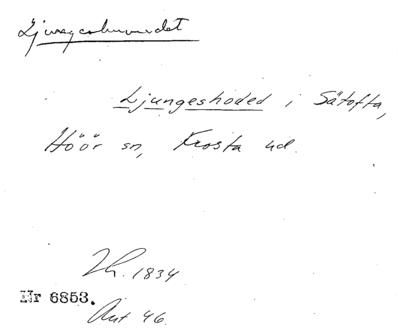 Ljungeshuvudet
Ljungeshoded i Sätofta,
Höör sn, Frosta hd.
Th. 1834
Nr 6853.
Ant 46.